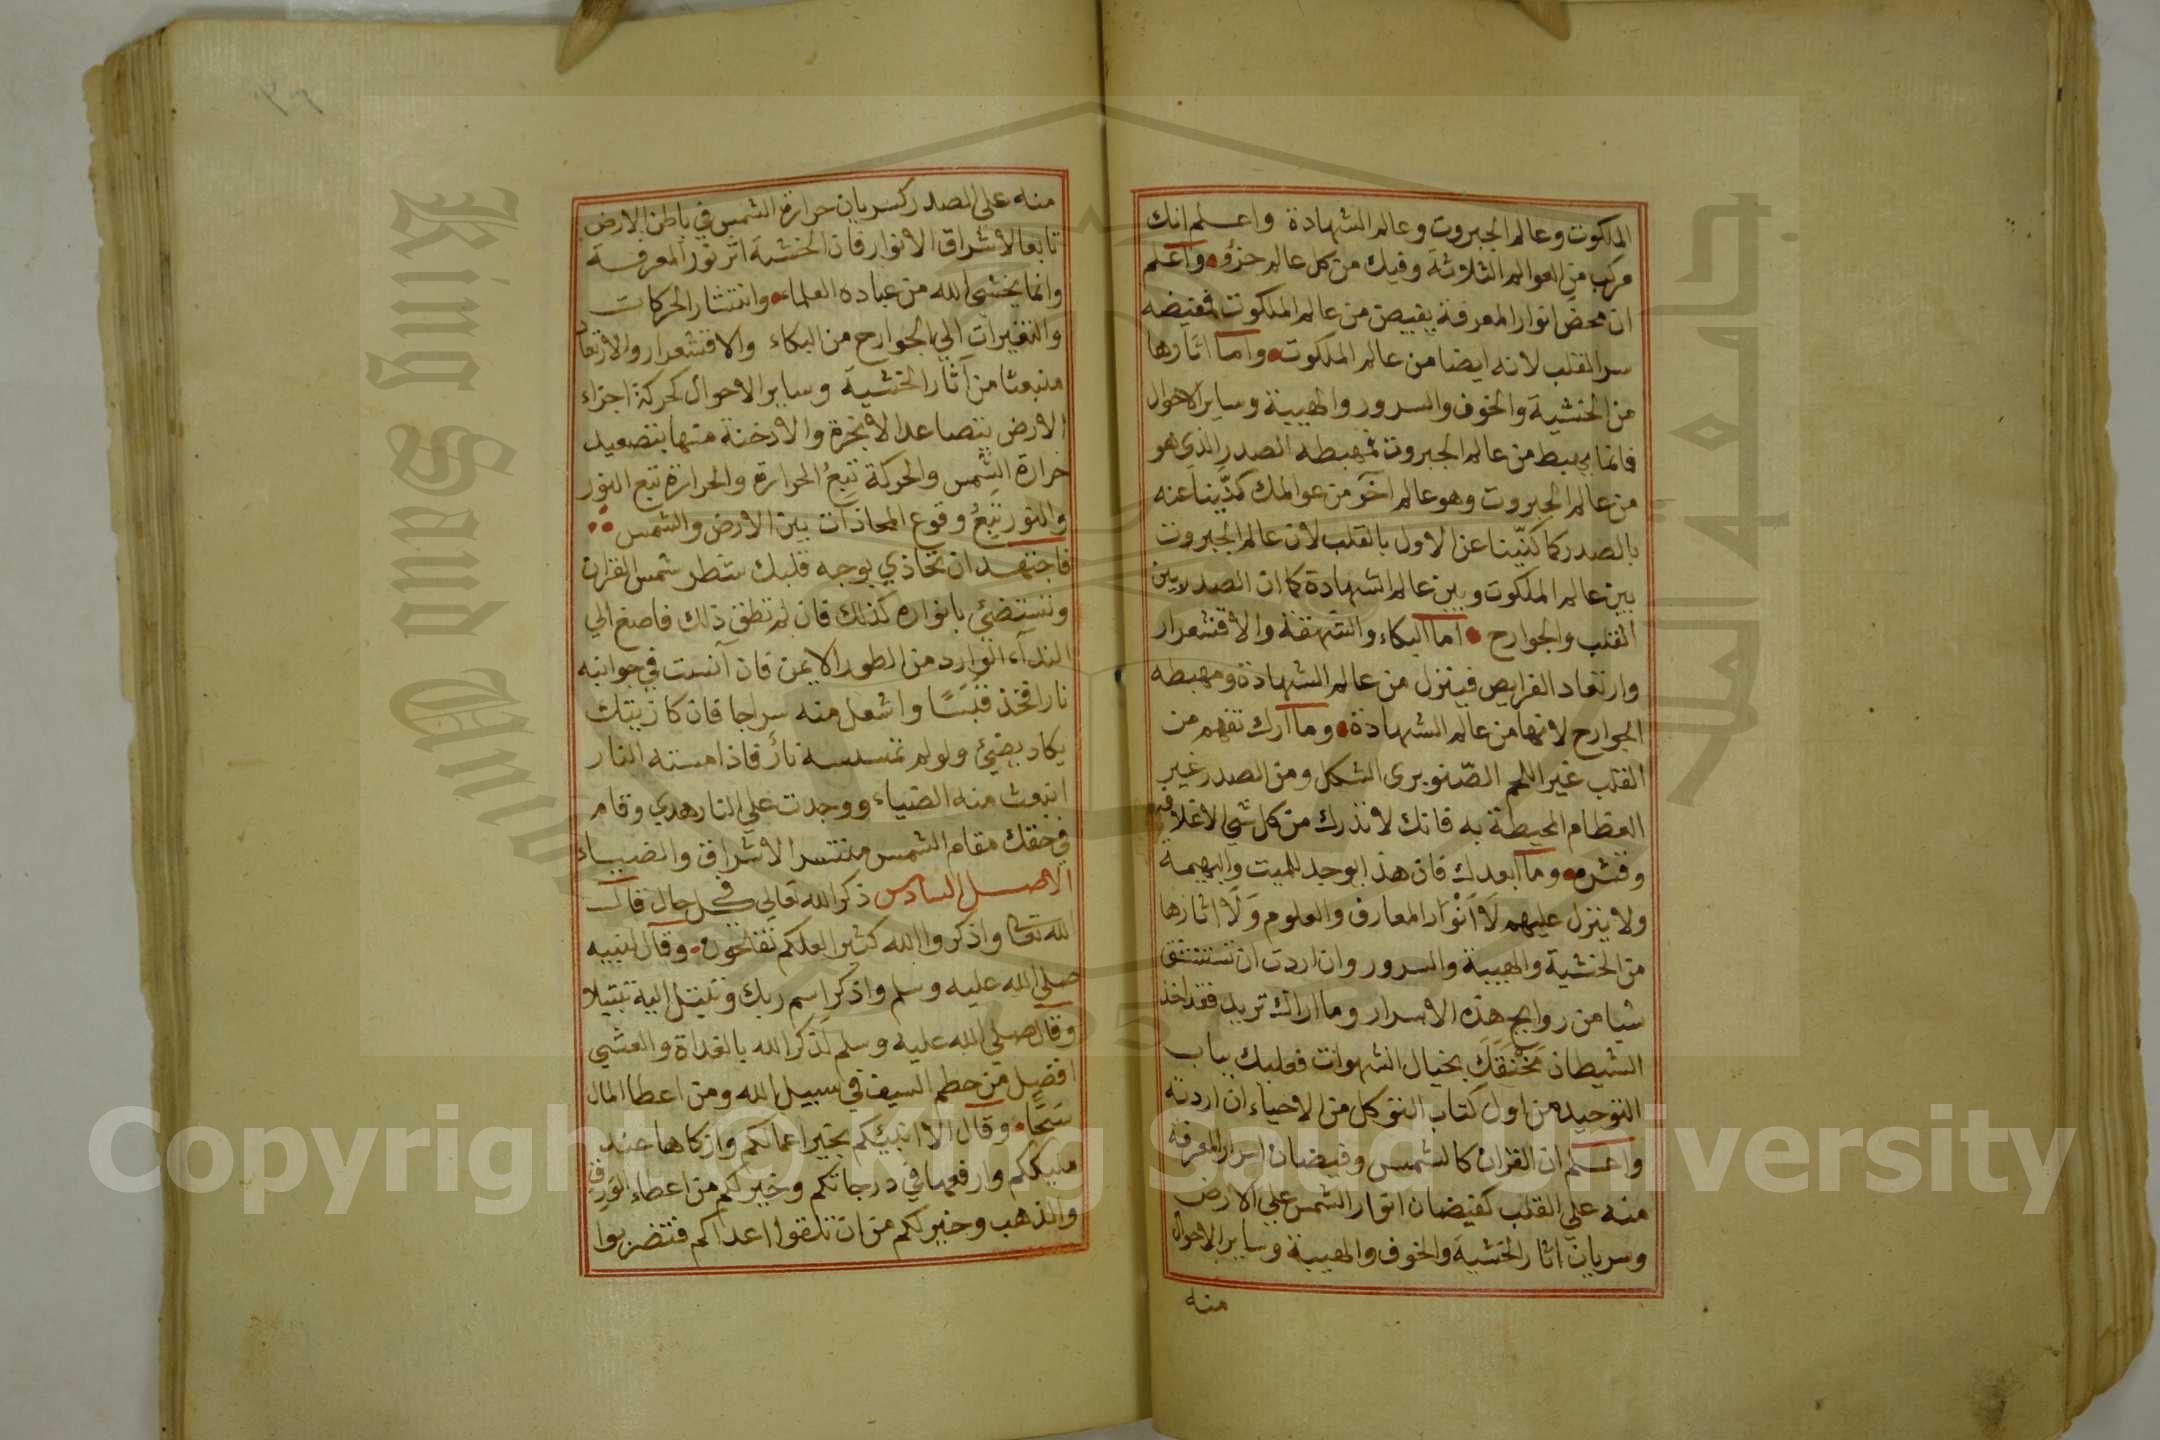 الملكوت وعالم الجبروت وعالم الشهادة واعلم انك
مركب من العوالم الثلاثة وفيك من كل عالم جزؤ واعلم
ان محض انوار المعرفة يفيض من عالم الملكوت فمفيضه
سر القلب لانه ايضا من عالم الملكوت واما اثارها
من الخشية والخوف والسرور والهيبة وساير الاحوال
فانما يهبط من عالم الجبروت فمهبطه الصدر الذي هو
من عالم الجبروت وهو عالم اخر من عوالمك كنّينا عنه
بالصدر كما كنّينا عن الاول بالقلب لان عالم الجبروت
بين عالم الملكوت وبين عالم الشهادة كما ان الصدر بين
القلب والجوارح اما البكاء والشهقة والاقشعرار
وارتعاد الفرايص فينزل من عالم الشهادة ومهبطه
الجوارح لانها من عالم الشهادة وما اراك تفهم من
القلب غير اللحم الصّنوبرى الشكل ومن الصدر غير
العظام المحيطة به فانك لا تدرك من كل شي الا غلافه
وقشره وما ابعدك فان هذا يوجد للميت والبهيمة
ولا ينزل عليهم لا انوار المعارف والعلوم ولا اثارها
من الخشية والهيبة والسرور وان اردت ان تستنشق
شيا من روايح هذه الاسرار وما اراك تريد فقد اخذ
الشيطان مخنقك بخيال الشهوات فعليك بباب
التوحيد من اول كتاب التوكل من الاحياء ان اردته
واعلم ان القران كالشمس وفيضان اسرار المعرفة
منه علي القلب كفيضان انوار الشمس علي الارض
وسريان اثار الخشية والخوف والهيبة وساير الاحوال
منه
منه علي الصدر كسريان حرارة الشمس في باطن الارض
تابعا لاشراق الانوار فان الخشية اثر نور المعرفة
وانما يخشى الله من عباده العلماء وانتشار الحركات
والتغيرات الي الجوارح من البكاء والاقشعرار والارتعاد
منبعثا من آثار الخشية وساير الاحوال كحركة اجزاء
الارض بتصاعد الابخرة والادخنة منها بتصعيد
حرارة الشمس والحركة تتبع الحرارة والحرارة تتبع النور
والنور تتبع وقوع المحاذات بين الارض والشمس
فاجتهد ان تحاذي بوجه قلبك شطر شمس القران
وتستضئ بانواره كذلك فان لم تطق ذلك فاصغ الي
الندآء الوارد من الطور الايمن فان آنست في جوانبه
نارا فخذ قبسًا واشعل منه سراجا فان كا زيتك
يكاد يضئ ولو لم تمسسه نار فاذا مسته النار
انبعث منه الضياء ووجدت علي النار هدي وقام
في حقك مقام الشمس منتشر الاشراق والضياء
الاصل السادس ذكر الله تعالي في كل حال قال
لله تعالى واذكروا الله كثير العلكم تفلحون وقال لنبيه
صلي الله عليه وسلم واذكر اسم ربك وتبتل اليه تبتيلا
وقال صلي الله عليه وسلم لذكر الله بالغداة والعشي
افضل من حطم السيف في سبيل الله ومن اعطا المال
سحّا وقال الا انبئكم بخير اعمالكم وازكاها عند
مليككم وارفعها في درجاتكم وخير لكم من اعطاء الورق
والذهب وخير لكم من ان تلقوا اعداكم فتضربوا